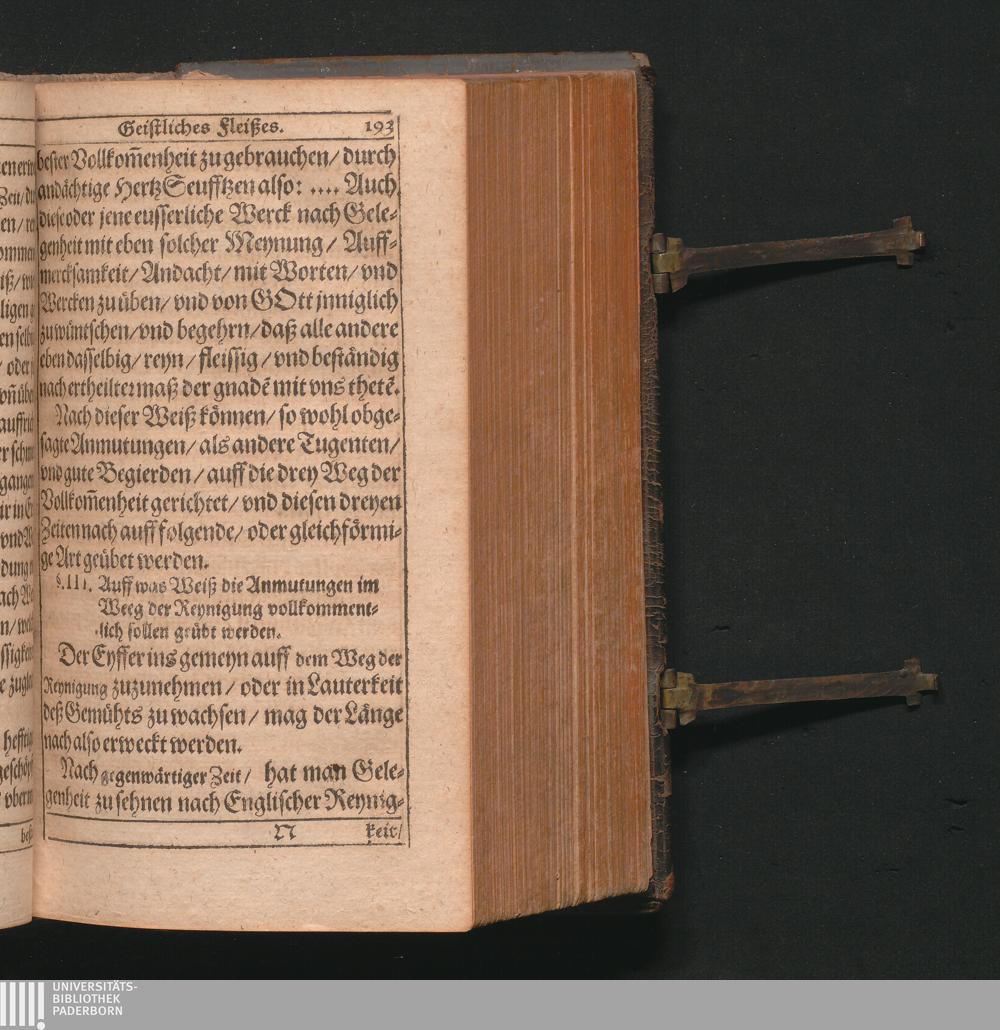 Geistliches Fleißes. 193
bester Vollkom̃enheit zu gebrauchen/ durch
andächtige HertzSeufftzen also: .... Auch
diese oder jene eusserliche Werck nach Gele-
genheit mit eben solcher Meynung/ Auff-
mercksamkeit/ Andacht/ mit Worten/ vnd
Wercken zu üben/ vnd von GOtt jnniglich
zu wüntschen/ vnd begehrn/ daß alle andere
eben dasselbig/ reyn/ fleissig/ vnd beständig
nach ertheilter maß der gnadẽ mit vns thetẽ.
Nach dieser Weiß können/ so wohl obge-
sagte Anmutungen/ als andere Tugenten/
vnd gute Begierden/ auff die drey Weg der
Vollkom̃enheit gerichtet/ vnd diesen dreyen
Zeiten nach auff folgende/ oder gleichförmi-
ge Art geübet werden.
§. III. Auff was Weiß die Anmutungen im
Weeg der Reynigung vollkomment-
lich sollen geübt werden.
Der Eyffer ins gemeyn auff dem Weg der
Reynigung zuzunehmen/ oder in Lauterkeit
deß Gemühts zu wachsen/ mag der Länge
nach also erweckt werden.
Nach gegenwärtiger Zeit/ hat man Gele-
genheit zu sehnen nach Englischer Reynig-
N keit/
UNIVERSITÄTS-
BIBLIOTHEK
PADERBORN